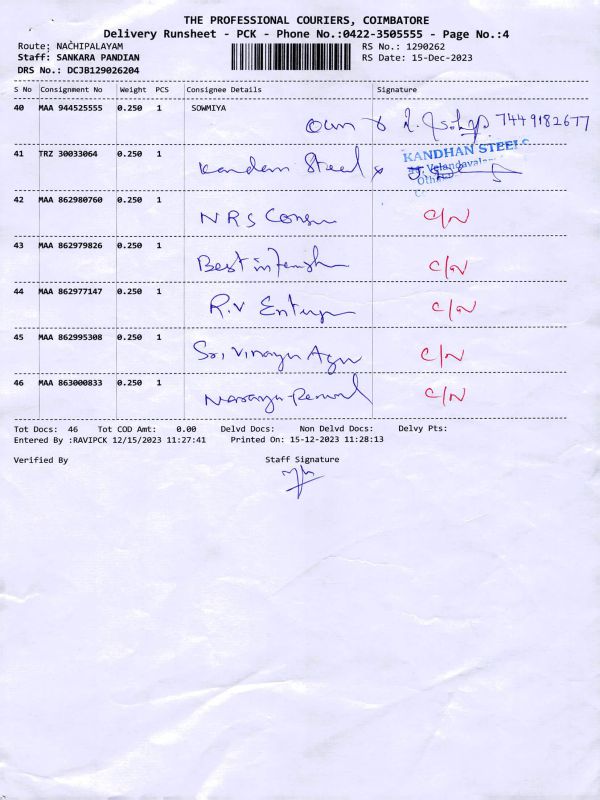 THE PROFESSIONAL COURIERS, COIMBATORE
Delivery Runsheet - PCK - Phone No.:0422-3505555 - Page No.:4
Route: NACHIPALAYAM RS No.: 1290262
Staff: SANKARA PANDIAN RS Date: 15-Dec-2023
DRS No.: DCJB129026204
S No Consignment No Weight PCS Consignee Details Signature
40 MAA 944525555 0.250 1 SOWMIYA
Own 7449182677
41 TRZ 30033064 0.250 1 Kandan Steel KANDHAN STEELS
42 MAA 862980760 0.250 1 NRS C/N
43 MAA 862979826 0.250 1 Best C/N
44 MAA 862977147 0.250 1 R.V C/N
45 MAA 862995308 0.250 1 Sri, C/N
46 MAA 863000833 0.250 1 C/N
Tot Docs: 46 Tot COD Amt: 0.00 Delvd Docs: Non Delvd Docs: Delvy Pts:
Entered By :RAVIPCK 12/15/2023 11:27:41 Printed On: 15-12-2023 11:28:13
Verified By Staff Signature